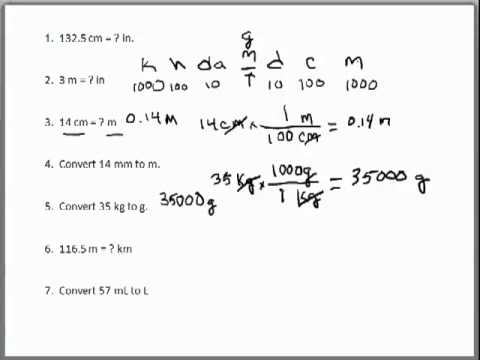 1. 132.5 cm = ? in.
g
k h da m d c m
1000 100 10 1 10 100 1000
2. 3 m = ? in
3. 14 cm = ? m 0.14 M 14 cm × 1 m / 100 cm = 0.14 m
4. Convert 14 mm to m.
35 kg × 1000g / 1 kg = 35000 g
5. Convert 35 kg to g. 35000 g
6. 116.5 m = ? km
7. Convert 57 mL to L